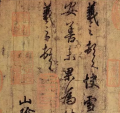 羲之頓首快雪
安善未果為
羲之頓首
山陰